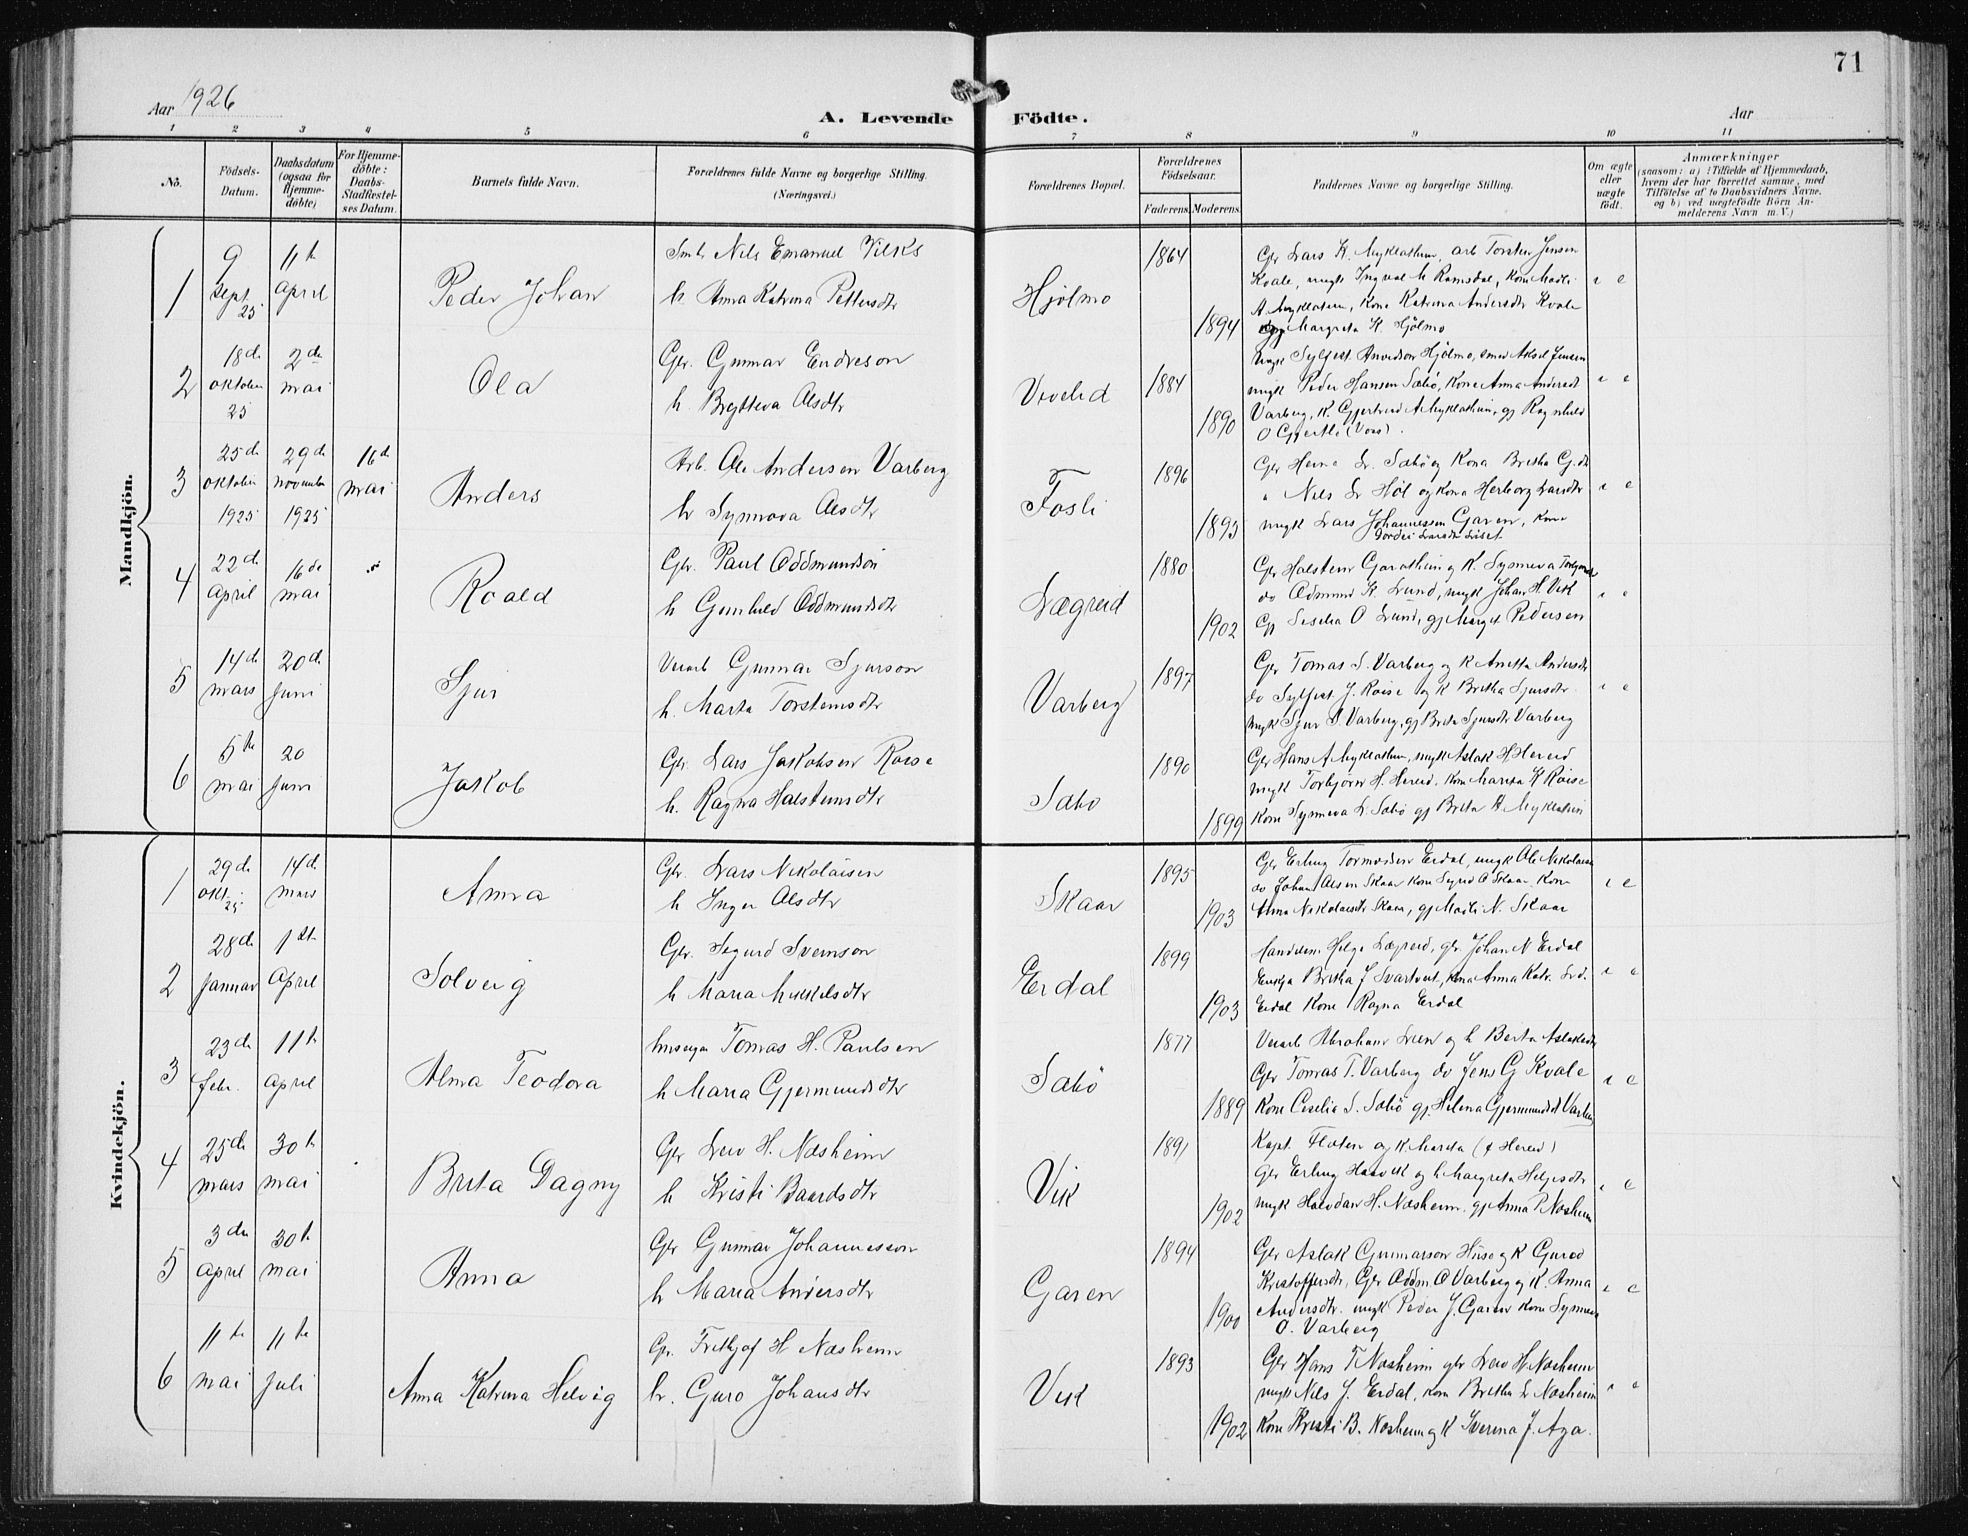 71
Aar 1926
A. Levende Födte.
Aar
1 2 3 4 5 6 7 8 9 10 11
No.
Födsels-Datum.
Daabsdatum (ogsaa for Hjemmedöbte)
For Hjemmedöbte: Daabs-Stadfæstelses Datum.
Barnets fulde Navn.
Forældrenes fulde Navne og borgerlige Stilling.
(Næringsvei.)
Forældrenes Bopæl.
Forældrenes Födselsaar.
Faderens. Moderens.
Faddernes Navne og borgerlige Stilling.
Om ægte eller uægte födt.
Anmærkninger
(saasom: a) i Tilfælde af Hjemmedaab, hvem der har forrettet samme, med Tilföielse af to Daabsvidners Navne, og b) ved uægtefödte Börn Anmelderens Navn m. V.)
Mandkjön.
1 9 Sept 25 11te April Peder Johan Nils Emanuel Vilks
h. Anna Katrina Pettersdtr Hjølmo 1864 1894
Gbr Lars K. Myklathun, arb Torsten Jensen
Kvale, ungk Ingvald M Ramsdal, Kone Madli
A Myklatun, Kone Katrina Andersdtr Kvale
Margreta K. Hjölmo
2 18de oktober 25 2de mai Ola Gbr. Gunnar Endreson
h. Bryteva Olsdtr Vivelid 1884 1890
ungk Sylfest Hjölmo, smed Aksel Jensen
ungk Peder Hansen Sæbö, Kone Anna Andersdt
Varberg, K. Gjertrud A Myklathun, gj Ragnhild
O Gjerthi (Voss).
3 25de oktober 1925 29de november 1925 16de mai Anders Arb. Ole Andersen Varberg
h Synnova Olsdtr Fosli 1896 1893
Gbr Sæbö og Kona Britha
Nils Höl og Kona Herborg Larsdtr
ungk Lars Johannessen Garen, Kone
4 22de April 16de mai Roald Gbr. Paul Oddmundson
h Gunhild Oddmundsdtr Lægreid 1880 1902
Gbr Halstein Garathun og K. Synneva
do Odmund K. Lund, ungk Johan H. Vik
Gj Sesilia O Lund, gj Marget Pedersen
5 14de mars 20de Juni Sjur Veiarb Gunnar Sjurson
h. Marta Torsteinsdtr Varberg 1897
Gbr Tomas S. Varberg og K Anetta Andersdtr
do Sylfest J. Röise og K Britha Sjursdtr
ungk Sjur S. Varberg, gj Brita Sjursdtr Varberg
6 5te mai 20 Juni Jakob Gbr. Lars Jakobsen Röise
h. Ragna Halsteinsdtr Sæbö 1890 1899
Gbr Hans A Myklathun, ungk Aslak H Hereid
ungk Torbjörn H. Hereid, Kone Marita K Röise
Kone Synneva L. Sæbö gj Brita A Myklatun
Kvindekjön.
1 29de okt. 25 14de mars Anna Gbr. Lars Nikolaisen
h Inger Olsdtr Skaar 1895 1903
Gbr Erling Tormodsen Erdal, ungk Ole Nikolaisen
do Johan Olsen Skaar Kone Sigrid O Skaar Kone
Anna Nikolaisdtr Skaar, gj Madli N. Skaar
2 28de Januar 1ste April Solveig Gbr. Sigurd Sveinson
h Maria Mikkelsdtr Erdal 1899 1903
Handelsm Helge Lægreid, gbr. Johan N Erdal
Enkja Britha J Svartveit, Kona Anna Katr.
Erdal Kone Ragna Erdal
3 23de febr. 11te April Alma Teodora Tomas H. Paulsen
h Maria Gjermundsdtr Sæbö 1877 1889
Veiarb Abraham Lien og h Berta Aslaksdtr
Gbr Tomas T. Varberg do Jens G Kvale
Kone Cecelia S. Sæbö gj. Helena Gjermundsdt Varberg
4 25de mars 30te mai Brita Dagny Gbr Leiv H. Næsheim
h Kristi Baardsdtr Vik 1891 1902
Kapt. Floten og K. Marita (f Hereid)
Gbr Erling Haavik og h Margreta Helgesdtr
ungk Halvdan H. Næsheim. gj Anna P Næsheim
5 3die April 30te mai Anna Gbr Gunnar Johannesson
h Maria Andersdtr Garen 1894 1900
Gbr Aslak Gunnarson Huse og K Gurid
Kristoffersdtr, Gbr Oddm. O Varberg og K. Anna
Andersdtr. ungk Peder J. Garen Kone Synneva
O. Varberg
6 11te mai 11te Juli Anna Katrina Helvig Gbr. Fritjof H Næsheim
h. Guro Johansdtr Vik 1893 1902
Gbr Hans T Næsheim gbr Leiv H Næsheim
ungk Nils J. Erdal, kone Britha L Næsheim
Kone Kristi B. Næsheim og K Sverina J. Aga.